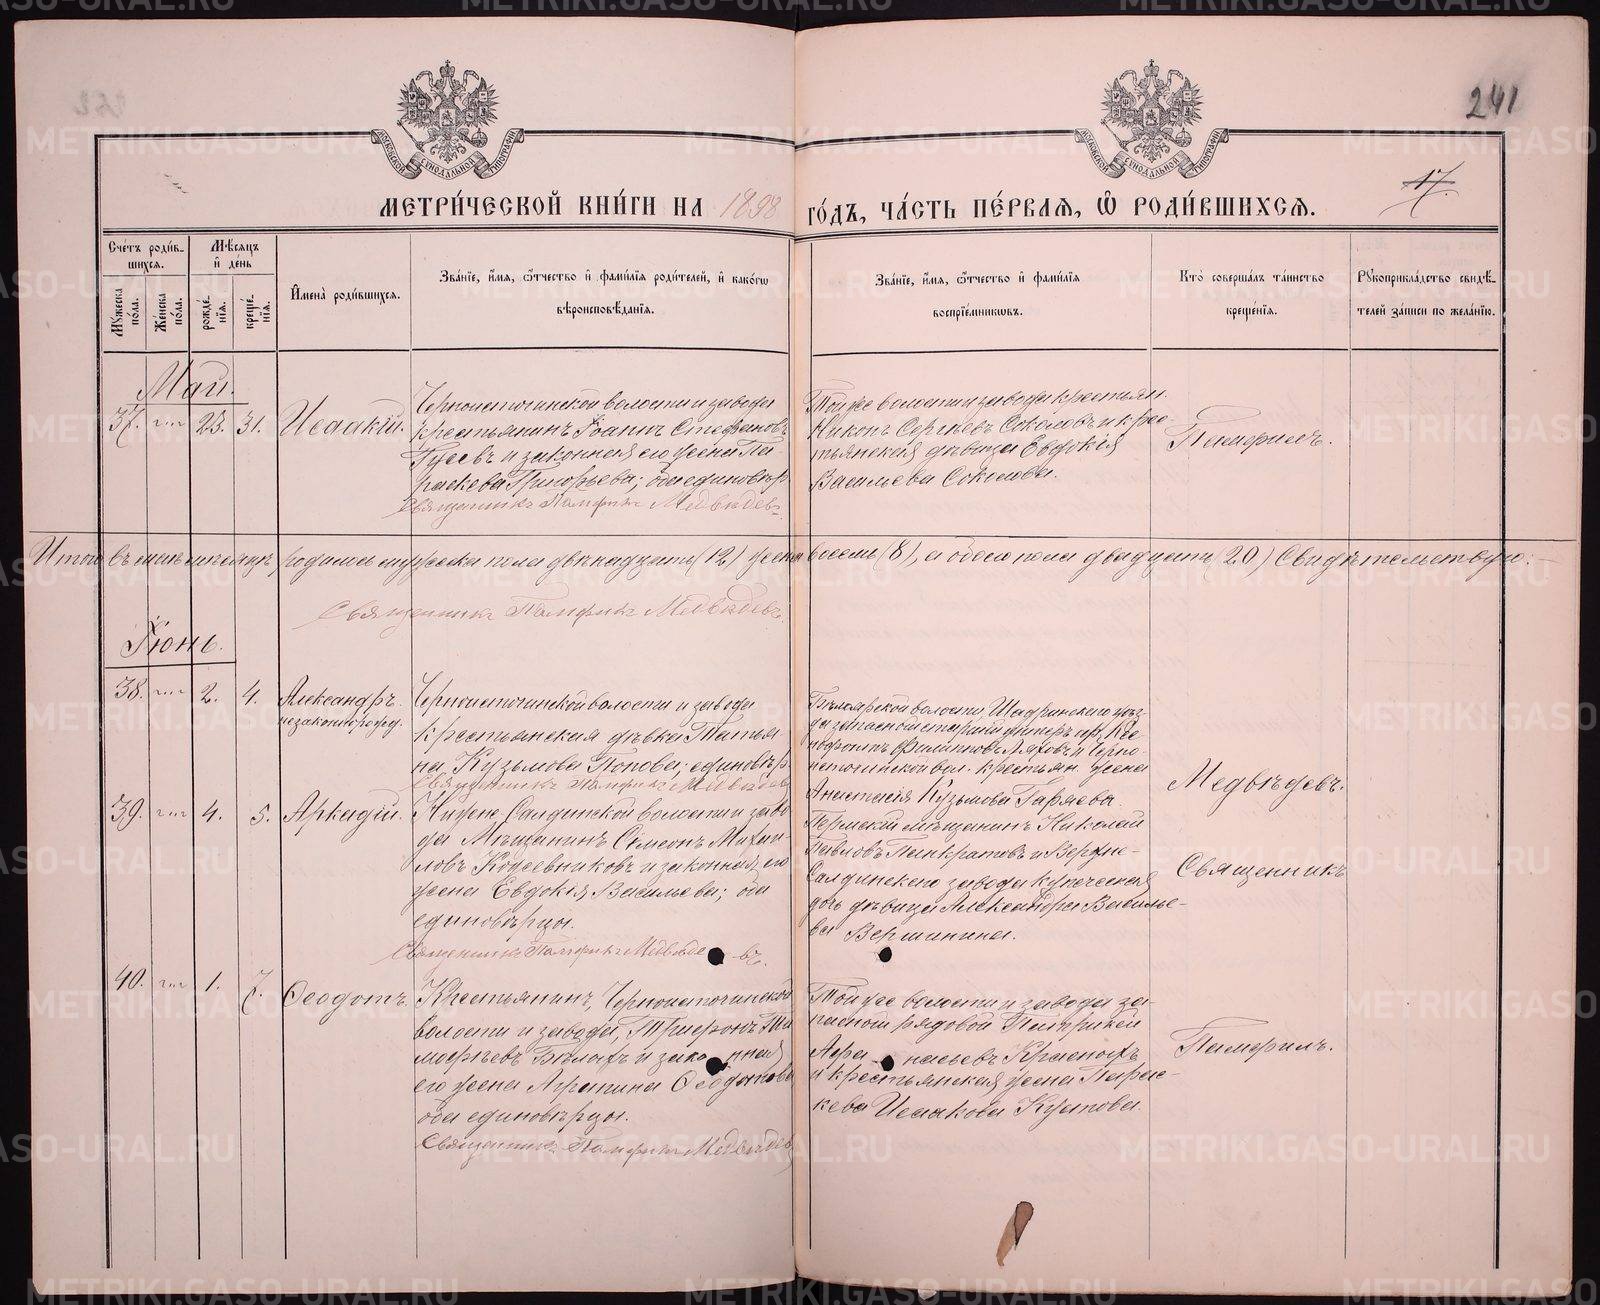 241
17.
МЕТРИ́ЧЕСКОЙ КНИ́ГИ НА 1898 ГО́ДЪ, ЧА́СТЬ ПЕ́РВАЯ, Ѡ РОДИ́ВШИХСЯ.
Сче́тъ роди́вшихся.
Мѣ́сяцъ и҆ де́нь
Мꙋ́жеска по́ла.
Же́нска по́ла.
рожде́нїя.
креще́нїя.
И҆мена̀ роди́вшихся.
Зва́нїе, и҆́мя, ѻ҆́тчество и҆ фами́лїя роди́телей, и҆ како́гѡ
вѣроисповѣ́данїя.
Зва́нїе, и҆́мя, ѻ҆́тчество и҆ фами́лїя
воспрїе́мникѡвъ.
Кто̀ соверша́лъ та́инство
креще́нїя.
Рꙋкоприкла́дство свидѣ́-
телей за́писи по жела́нїю.
Май.
37. 23. 31. Исаакій.
Черноисточинской волости и завода
крестьянинъ Іоаннъ Стефановъ
Гусевъ и законная его жена Па-
раскева Григорьева; оба единовѣр.
Священникъ Памфилъ Медвѣдевъ
Той же волости и завода крестьян.
Никонъ Сергѣевъ Соколовъ и крес-
тьянская дѣвица Евдокія
Васильева Соколова.
Памфилъ.
Итого въ маѣ мѣсяцѣ родилось мужеска пола двѣнадцать (12) женска восемь (8), а обоего пола двадцать (20) Свидѣтельствую:
Священникъ Памфилъ Медвѣдевъ.
Іюнь.
38. 2. 4. Александръ
незаконорожд.
Черноисточинской волости и завода
крестьянская дѣвка Татья-
на Кузьмова Попова; единовѣр.
Священникъ Памфилъ Медвѣдевъ
Бѣлоярской волости, Шадринскаго уѣз-
да запасный старшій
Филипповъ Ляховъ и Черно-
источинской вол. крестьян. жена
Анастасія Кузьмова Гаряева.
Медвѣдевъ.
39. 4. 5. Аркадій.
Нижне-Салдинской волости и заво-
да мѣщанинъ Симеонъ Михаи-
ловъ Кожевниковъ и законная его
жена Евдокія Васильева; оба
единовѣрцы.
Священникъ Памфилъ Медвѣдевъ.
Пермскій мѣщанинъ Николай
Павловъ Панкратовъ и Верхне-
Салдинскаго завода купеческая
дочь дѣвица Александра Василье-
ва Вершинина.
Священникъ
40. 1. 7. Ѳеодотъ.
Крестьянинъ, Черноисточинской
волости и завода, Трифонъ Ти-
мофѣевъ Бѣлыхъ и законная
его жена Агрипина Ѳеодотова
оба единовѣрцы.
Священникъ Памфилъ Медвѣдев
Той же волости и завода за-
пасной рядовой Патрикей
Афанасьевъ Красныхъ
и крестьянская жена Парас-
кева Исаакова
Памфилъ.
METRIKI.GASO-URAL.RU